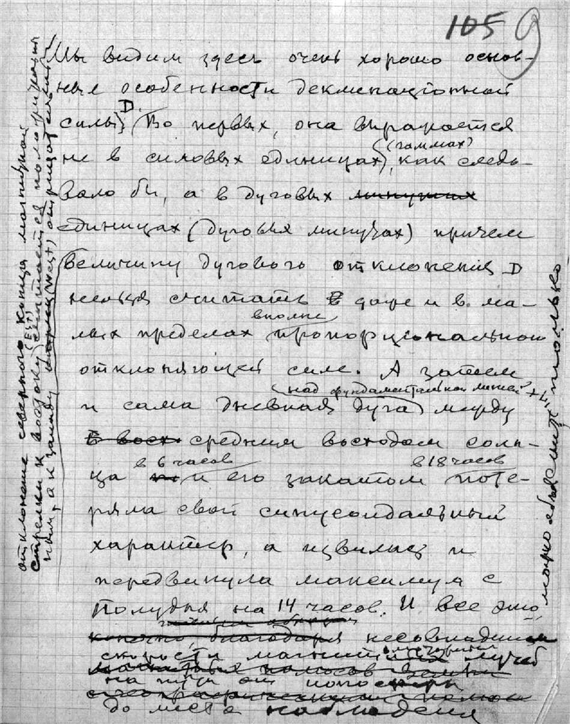 105
9
Мы видим здесь очень хорошо основ-
ные особенности деклинационной
силы D. Во первых, она выражается
(гаммах)
не в силовых единицах, как следо-
вало бы, а в дуговых минутах
единицах (дуговых минутах) причем
величину дугового отклонения D
нельзя считать даже и в ма-
вполне
лых пределах пропорциональной
отклоняющей силе. А затем
(над фундаментальной линией
и сама дневная дуга) между
средним восходом солн-
в 6 часов в 18 часов
ца и его закатом поте-
ряла свой синусоидальный
характер, а извилась и
передвинула максимум с
полудня на 14 часов. И все это
конечно, благодаря несовпадения
скорости
на пути от
до места наблюдения
отклонение северного конца магнитной
стрелки к востоку (Est) считается положительным
а к западу отрицательным
только